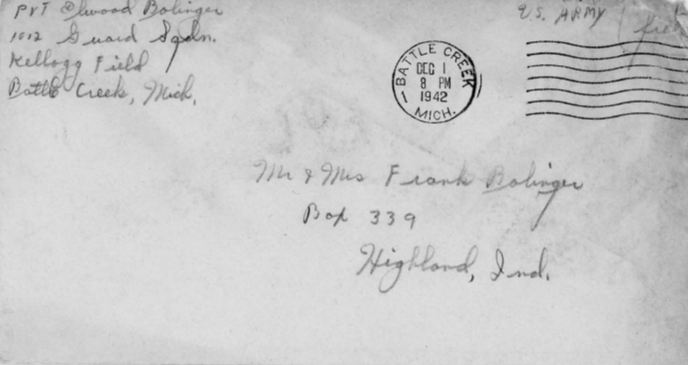 PVT Elwood Bolinger
1012 Guard Sqdn.
Kellogg Field
Battle Creek, Mich.
U.S. ARMY
free
BATTLE CREEK
DEC 1
8 PM
1942
MICH.
Mr & Mrs Frank Bolinger
Box 339
Highland, Ind.